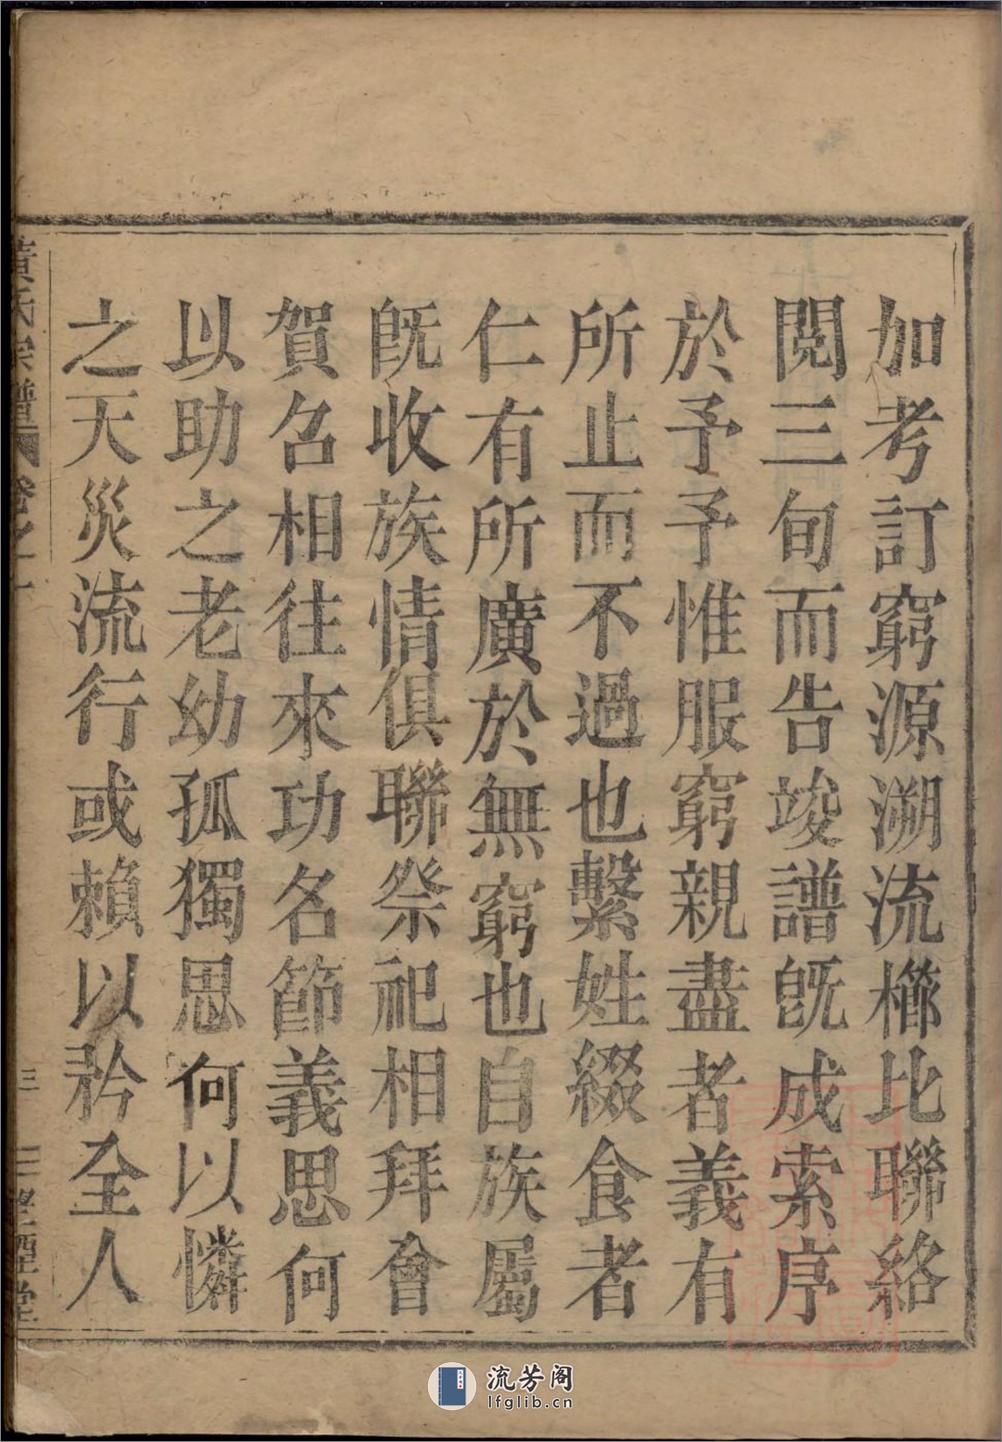 加考訂窮源溯流櫛比聯絡
閱三旬而告竣譜旣成索序
於予予惟服窮親盡者義有
所止而不過也繫姓綴食者
仁有所廣於無窮也自族屬
旣收族情俱聯祭祀相拜會
賀名相往來功名節義思何
以助之老幼孤獨思何以憐
之天災流行或賴以矜全人
黃氏宗譜 卷之一 三
流芳阁
lfglib.cn